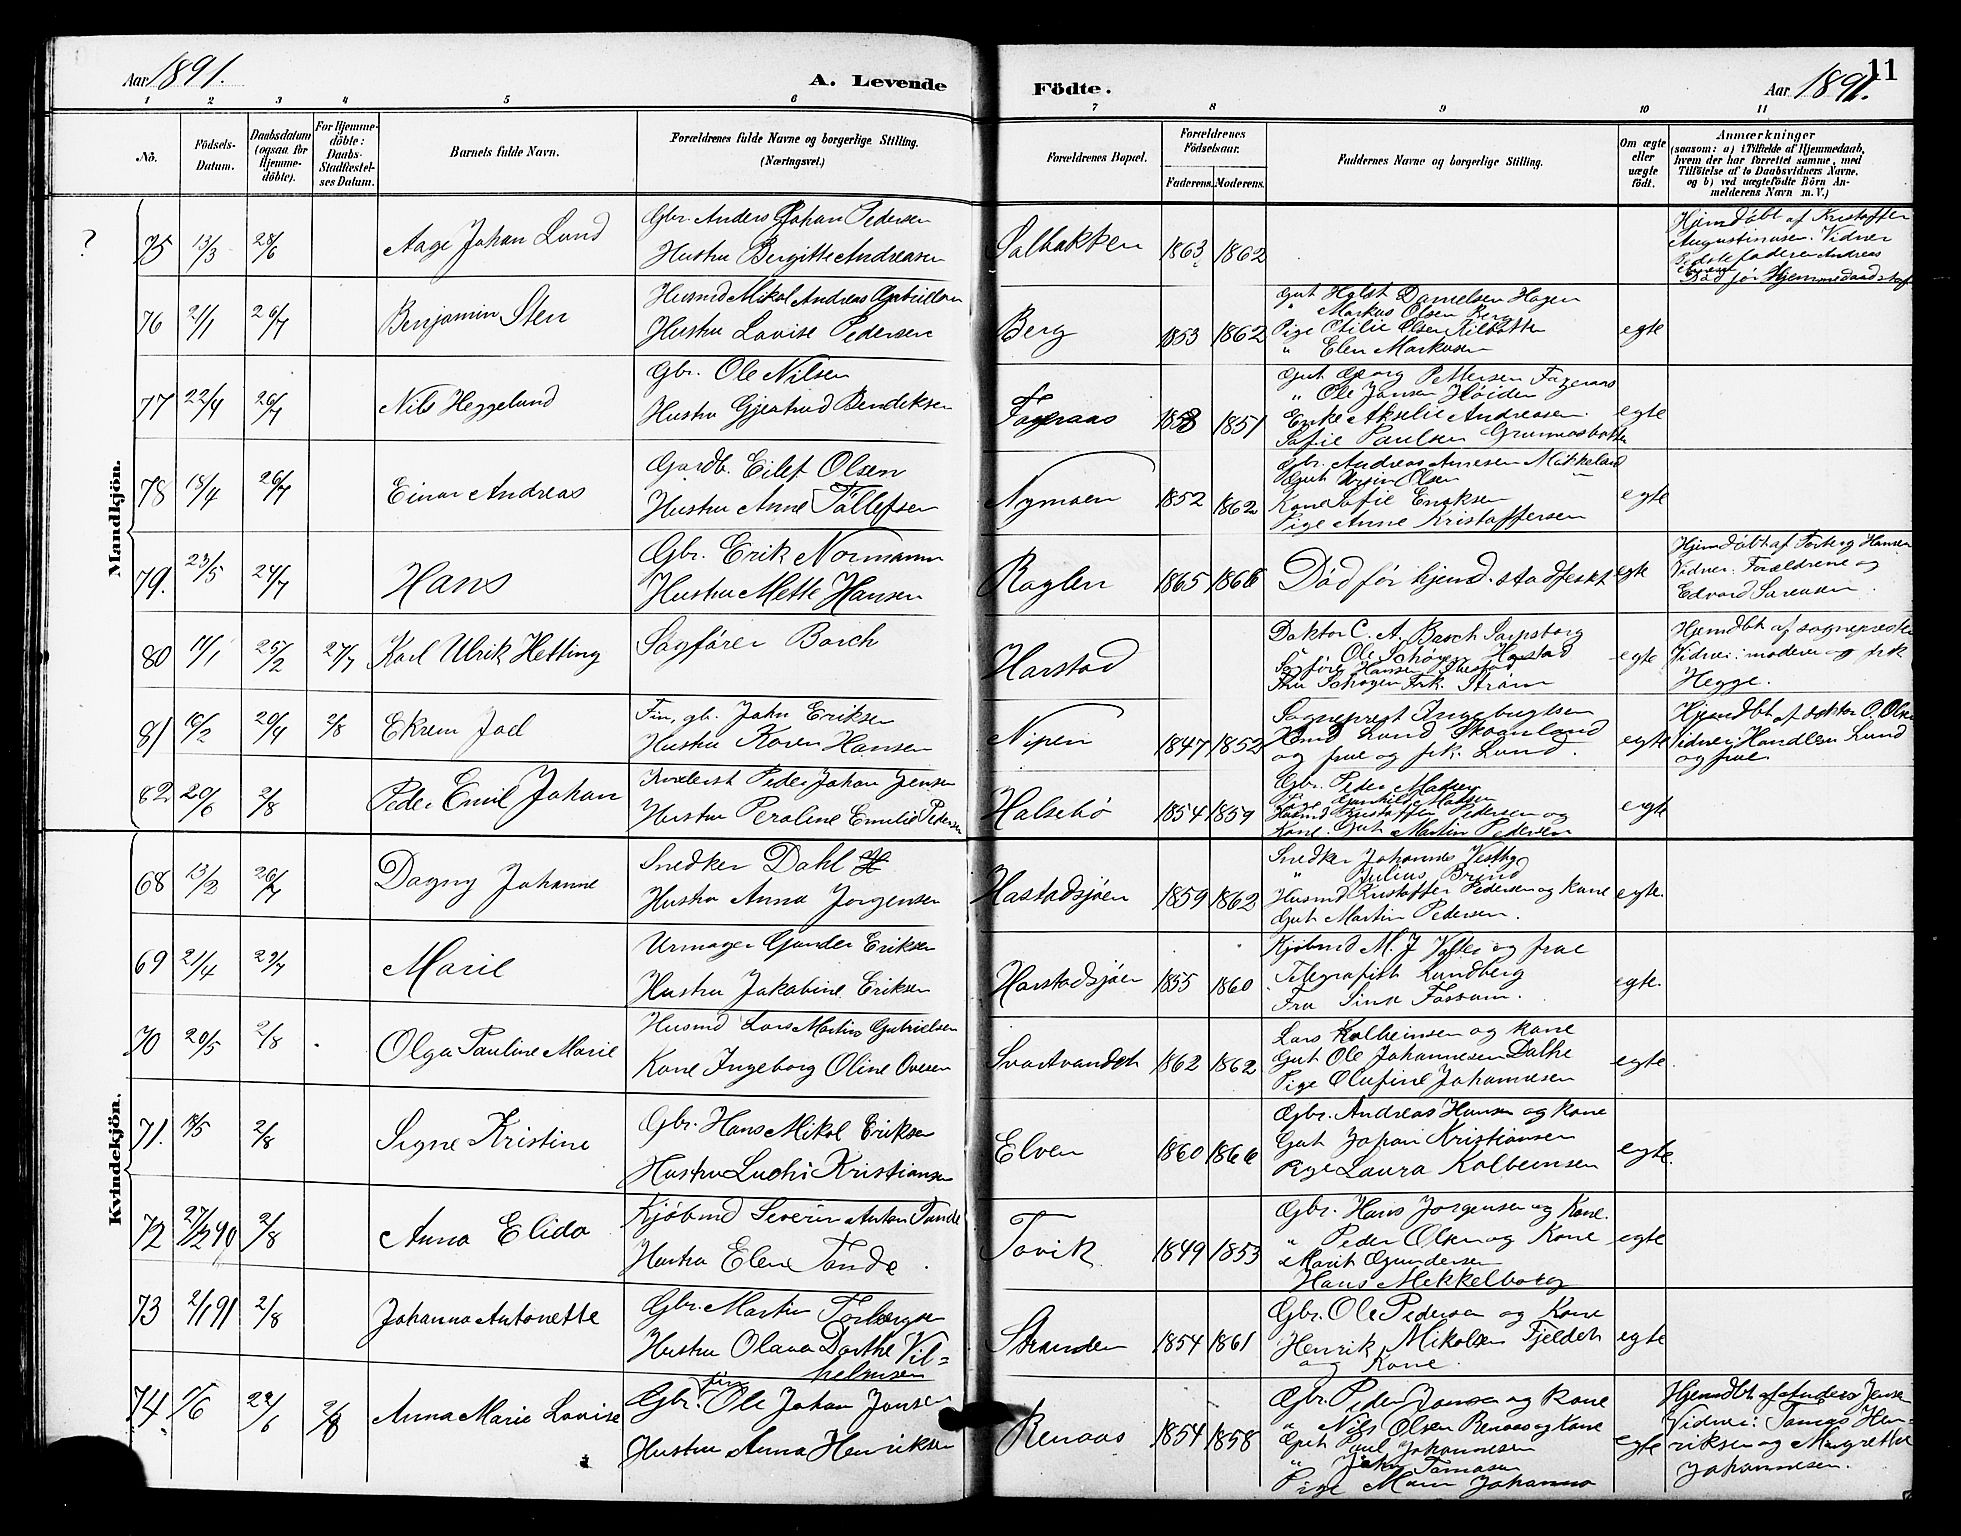 Aar 1891.
A. Levende
Födte.
Aar 1891.
11
1 2 3 4 5 6 7 8 9 10 11
Nō.
Födsels-Datum.
Daabsdatum (ogsaa for Hjemme-döbte).
For Hjemme-döbte: Daabs-Stadfæstel-ses Datum.
Barnets fulde Navn.
Forældrenes fulde Navne og borgerlige Stilling. (Næringsvei.)
Forældrenes Bopæl.
Forældrenes Födselsaar.
Faderens. Moderens.
Faddernes Navne og borgerlige Stilling.
Om ægte eller uægte födt.
Anmærkninger
(saasom: a) i Tilfælde af Hjemmedaab, hvem der har forrettet samme, med Tilföielse af to Daabsvidners Navne, og b) ved uægtefödte Börn An-melderens Navn m. V.)
Mandkjön.
? 75 13/3 28/6 Aage Johan Lund
Gbr. Anders Johan Pedersen
Hustru Bergitte Andreasen
Salbakken 1863 1862
Hjemdöbt af Kristoffer
Augustinusen. Vidner
faderen Andreas
Död før Hjemmedaab
76 21/1 26/7 Benjamin Sten
Husmd Mikal Andreas Gabriellsen
Hustru Lovise Pedersen
Berg 1853 1862
Gut Holst Danielsen Hagen
" Markus Olsen Berg
Pige Otilie Olsen
" Elen Markusen
egte
77 22/4 26/7 Nils Heggelund
Gbr. Ole Nilsen
Hustru Gjertrud Bendiksen
Fageraas 1853 1851
Gut Georg Pettersen Fageraas
" Ole Jansen Høiden
Enke Akselie Andreasen.
Sofie Paulsen
egte
78 18/4 26/7 Einar Andreas
Gardb. Eilef Olsen
Hustru Anne Tollefsen
Nymoen 1852 1862
Gbr. Andreas Arnesen
Gut Olsen
Kone Sofie Eriksen
Pige Anne Kristoffersen
egte
79. 23/5 24/7 Hans
Gbr. Erik Normann
Hustru Mette Hansen
Roglen 1865 1866
Död før hjemd. stadfestet
egte
Hjemdöbt af Torberg Hansen
Vidner. Forældrene og
Edvard Sørensen.
80 11/1 25/2 27/7 Karl Ulrik Hetting
Sagfører Borch
Harstad
Doktor C. A. Borch Sarpsborg
Ole Schøyen Harstad
Sagfører Hansen Harstad
Fru Schøyen Frk. Strøm
egte
Hjemdbt af sognepresten
Vidner: moderen og frk
Hegge.
81 10/2 20/4 2/8 Ekrem Joel
Fin, gb. John Eriksen
Hustru Karen Hansen
Nipen 1847 1852
Sogneprest Ingebrigtsen
Hmd Lund Skaanland
og frue og frk. Lund.
egte
Hjemdbt af doktor O. Olsen
Vidner: Handlen Lund
og frue
82 20/6 2/8 Peder Emil Johan
Inderst Peder Johan Jensen
Hustru Peraline Emilie Pedersen
Halsebø 1854 1859
Gbr. Peder Madsen
Pige Gunhild Madsen
Husmd Kristoffer Pedersen og
Kone. Gut Martin Pedersen
egte
Kvindekjön.
68 13/2 26/7 Dagny Johanne
Snedker Dahl
Hustru Anna Jørgensen
Hastadsjøen 1859 1862
Snedker Johannes Vestby
" Julius Brind
Husmd Kristoffer Pedersen og Kone
Gut Martin Pedersen.
egte.
69 21/4 29/7 Marie
Urmager Gunder Eriksen
Hustru Jakobine Eriksen
Harstadsjøen 1855 1860
Kjøbmd M. J. og frue
Telegrafist Lundberg
Fru Sina Fossum.
egte.
70 20/5 2/8 Olga Pauline Marie
Husmd Lars Martin Gabrielsen
Kone Ingeborg Oline Ovesen
Svartvandet 1862 1862
Lars Kolbeinsen og kone
Gut Ole Johannesen Dalhe
Pige Olufine Johannesen
egte.
71. 14/5 2/8 Signe Kristine
Gbr. Hans Mikal Eriksen
Hustru Kristiansen
Elven 1860 1866
Gbr. Andreas Hansen og kone
Gut Johan Kristiansen
Pige Laura Kolbeinsen
egte.
72 27/12 90 2/8 Anna Elida
Kjøbmd Severin Anton Tande
Hustru Elene Tande.
Tovik 1849 1853
Gbr. Hans Jørgensen og Kone.
" Peder Olsen og Kone
Marit Gundersen
Hans Mekkelborg
egte
73 2/1 91 2/8 Johanna Antonette
Gbr. Martin Torbergsen
Hustru Olava Dorthe Vil=
helmsen
Stranden 1854 1861
Gbr. Ole Pedersen og Kone
Henrik Mikalsen Fjeldet
og Kone.
egte
74 1/6 22/6 2/8 Anna Marie Lovise
Gbr. fin Ole Johan Jonsen
Hustru Anna Henriksen
Renaas 1854 1858
Gbr. Peder Jonsen og kone
" Nils Olsen Renaas og Kone
Gut Paul Johannesen
" John Tomasen
Pige Maren Johanna
egte
Hjemdbt af Anders Jensen
Vidner: Tomas Hen-
riksen og Margrethe
Johannesen.